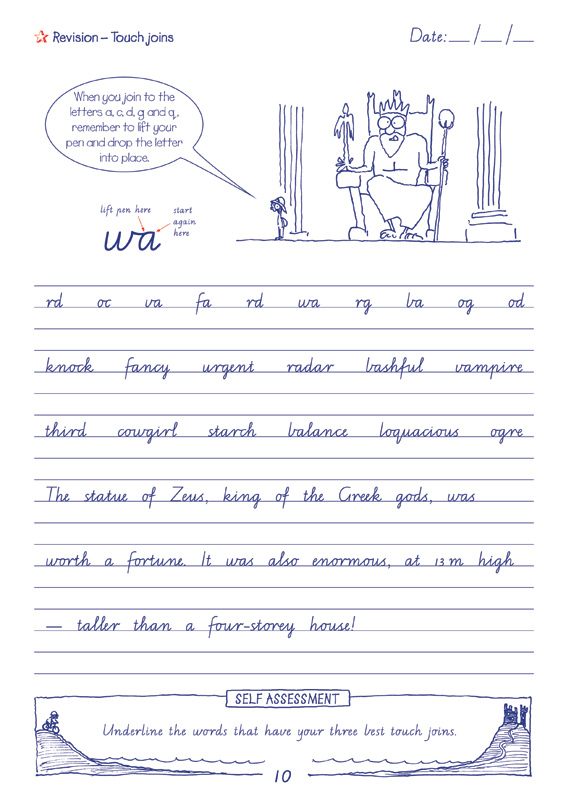 Revision – Touch joins
Date: __ / __ / __
When you join to the
letters a, c, d, g and q,
remember to lift your
pen and drop the letter
into place.
lift pen here
start
again
here
wa
rd oc va fa rd wa rg ba og od
knock fancy urgent radar bashful vampire
third cowgirl starch balance loquacious ogre
The statue of Zeus, king of the Greek gods, was
worth a fortune. It was also enormous, at 13 m high
— taller than a four-storey house!
SELF ASSESSMENT
Underline the words that have your three best touch joins.
10